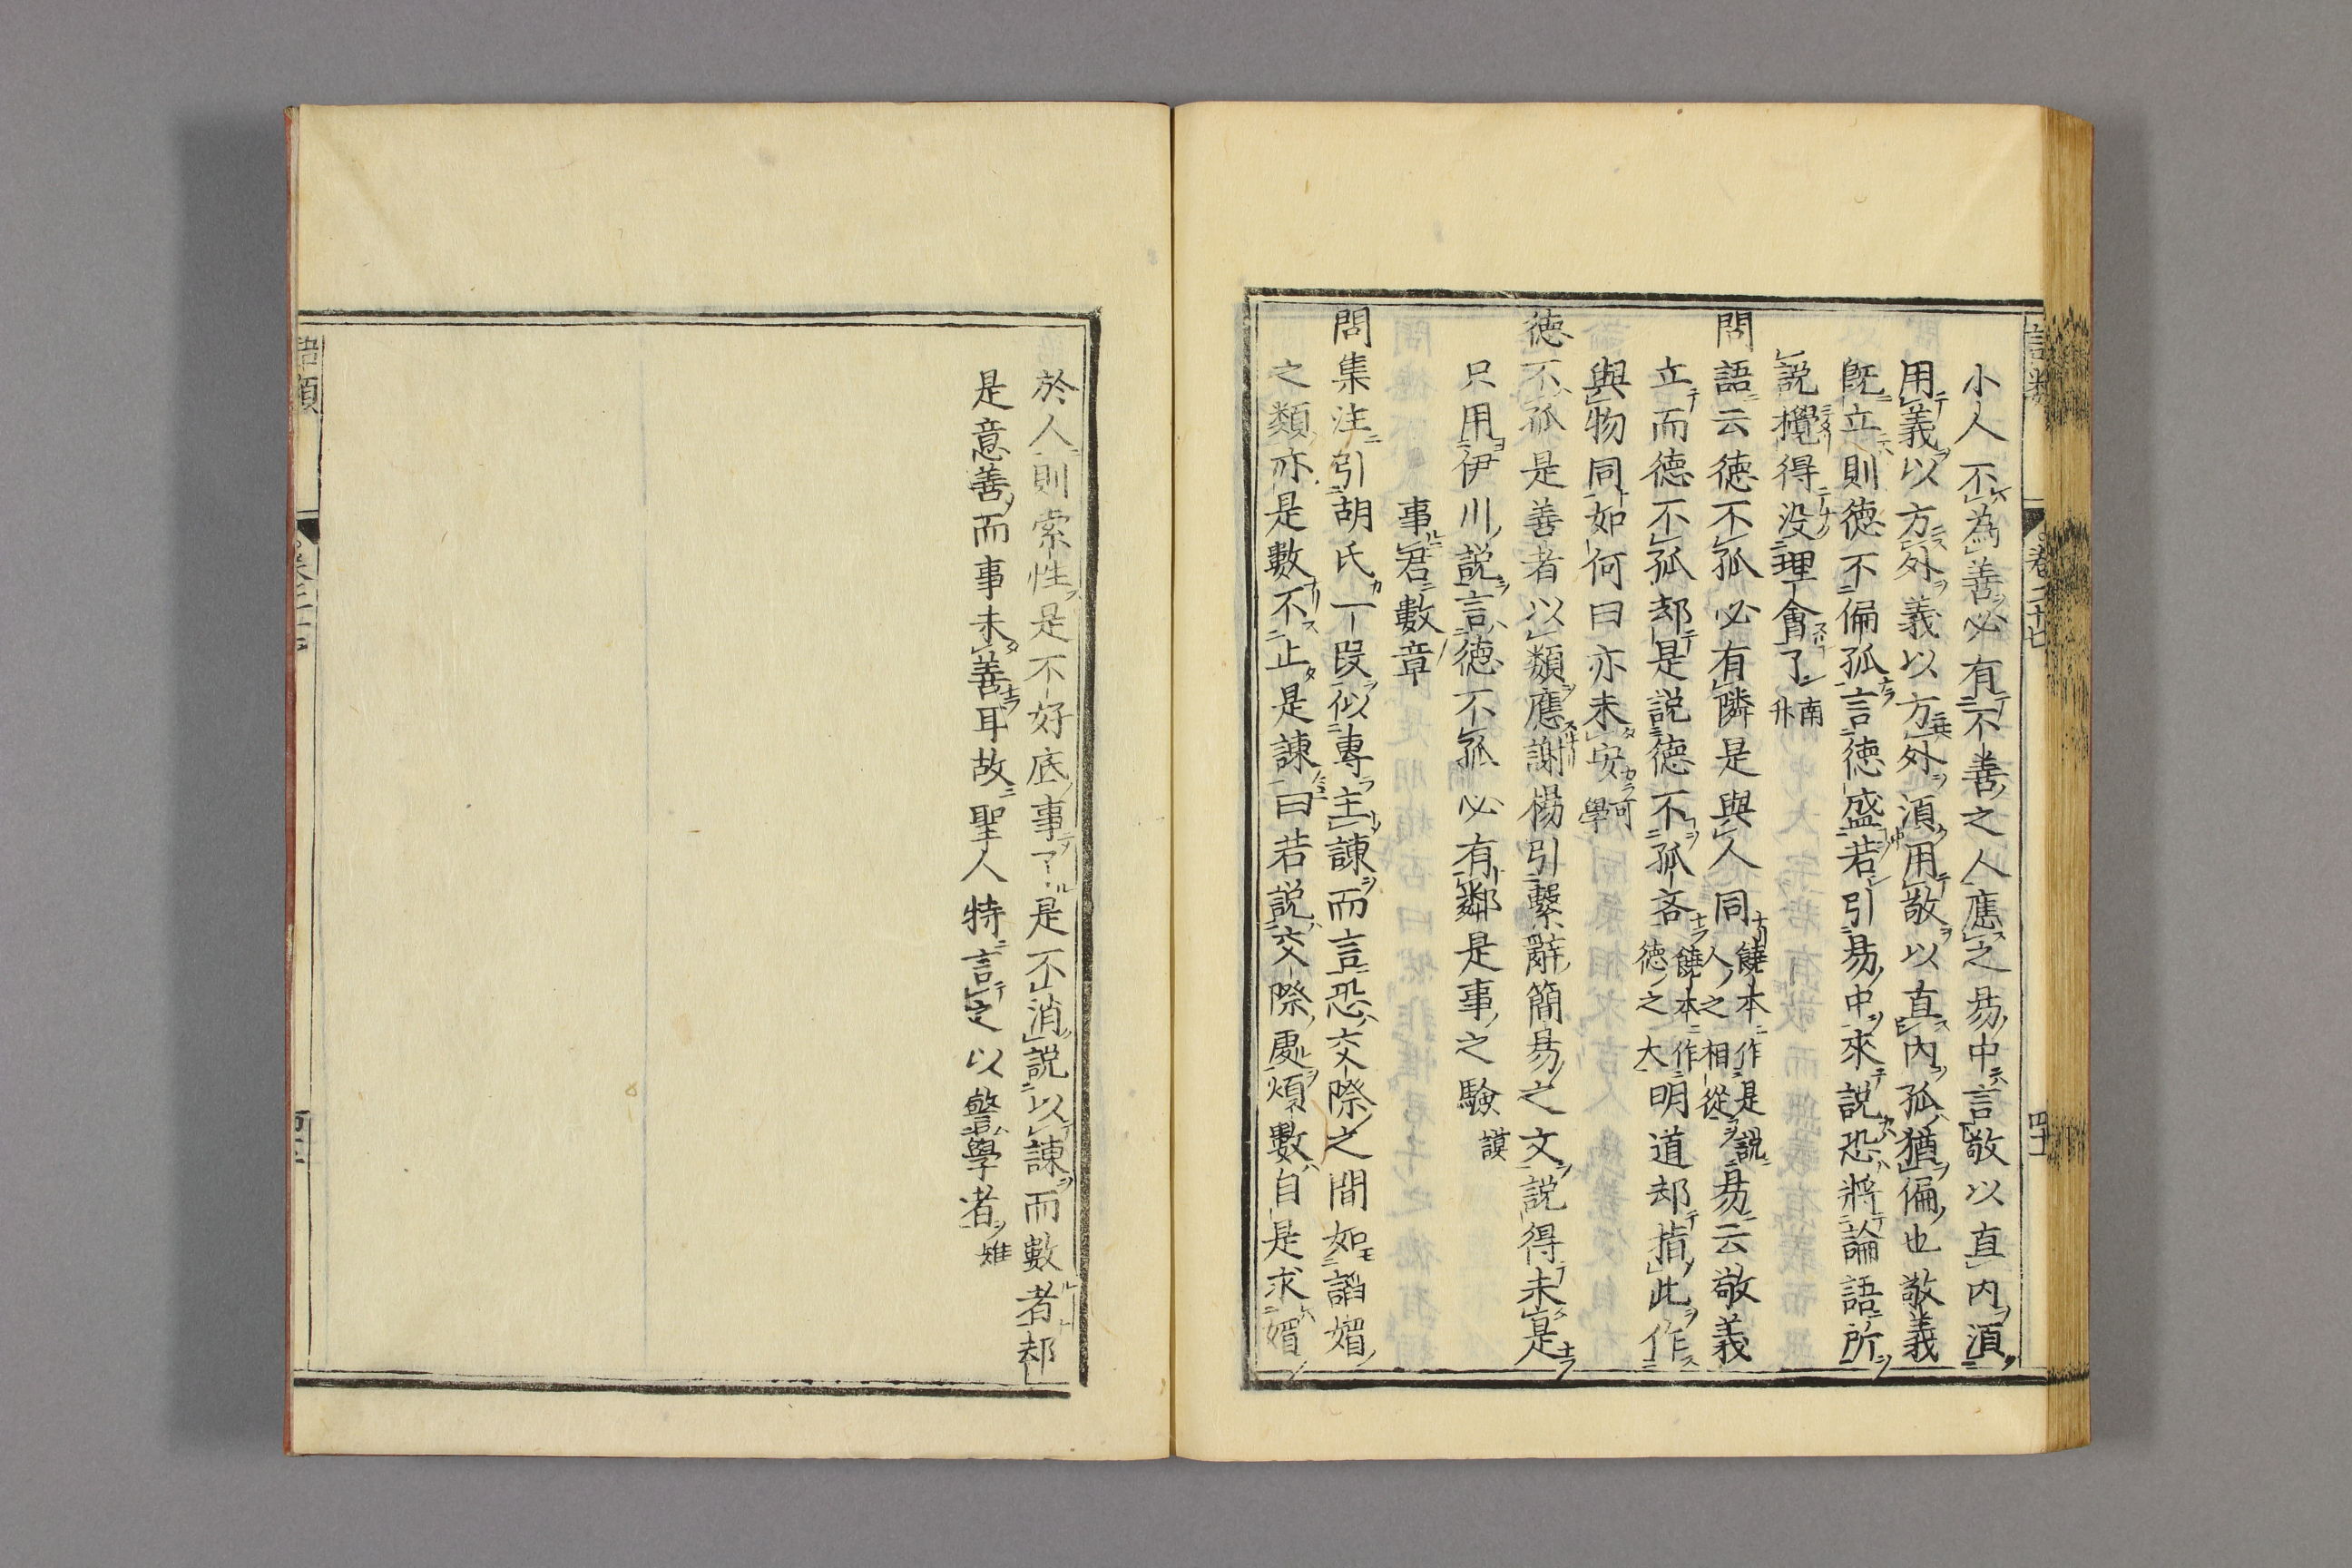 語類 卷二十七 四十一
小人不為善必有不善之人應之易中言敬以直内須
用義以方外義以方外須用敬以直内孤猶偏也敬義
既立則徳不偏孤言徳盛若引易中來説恐將論語所
説攪得没理會了南升
問語云徳不孤必有隣是與人同饒本作是説人之相從易云敬義
立而徳不孤却是説徳不孤吝饒本作徳之大明道却指此作
與物同如何曰亦未安可學
徳不孤是善者以類應謝楊引繫辭簡易之文説得未是
只用伊川説言徳不孤必有鄰是事之驗謨
事君數章
問集注引胡氏一段似專主諫而言恐交際之間如諂媚
之類亦是數不止是諫曰若説交際處煩數自是求媚
於人則索性是不好底事了是不消説以諫而數者却
是意善而事未善耳故聖人特言之以警學者雉
語類